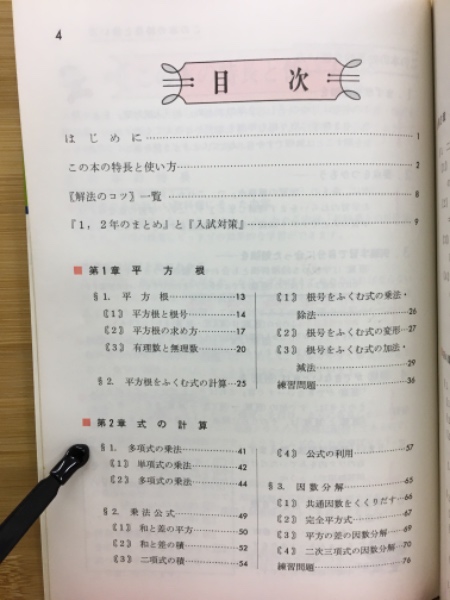 4
目次
はじめに……1
この本の特長と使い方……2
〖解法のコツ〗一覧……8
『1，2年のまとめ』と『入試対策』……9
第1章 平方根
§1. 平方根……13
⟪1⟫ 平方根と根号……14
⟪2⟫ 平方根の求め方……17
⟪3⟫ 有理数と無理数……20
§2. 平方根をふくむ式の計算……25
⟪1⟫ 根号をふくむ式の乗法・
除法……26
⟪2⟫ 根号をふくむ式の変形……27
⟪3⟫ 根号をふくむ式の加法・
減法……29
練習問題……36
第2章 式の計算
§1. 多項式の乗法……41
⟪1⟫ 単項式の乗法……42
⟪2⟫ 多項式の乗法……44
§2. 乗法公式……49
⟪1⟫ 和と差の平方……50
⟪2⟫ 和と差の積……52
⟪3⟫ 二項式の積……54
⟪4⟫ 公式の利用……57
§3. 因数分解……65
⟪1⟫ 共通因数をくくりだす……66
⟪2⟫ 完全平方式……67
⟪3⟫ 平方の差の因数分解……69
⟪4⟫ 二次三項式の因数分解……70
練習問題……76